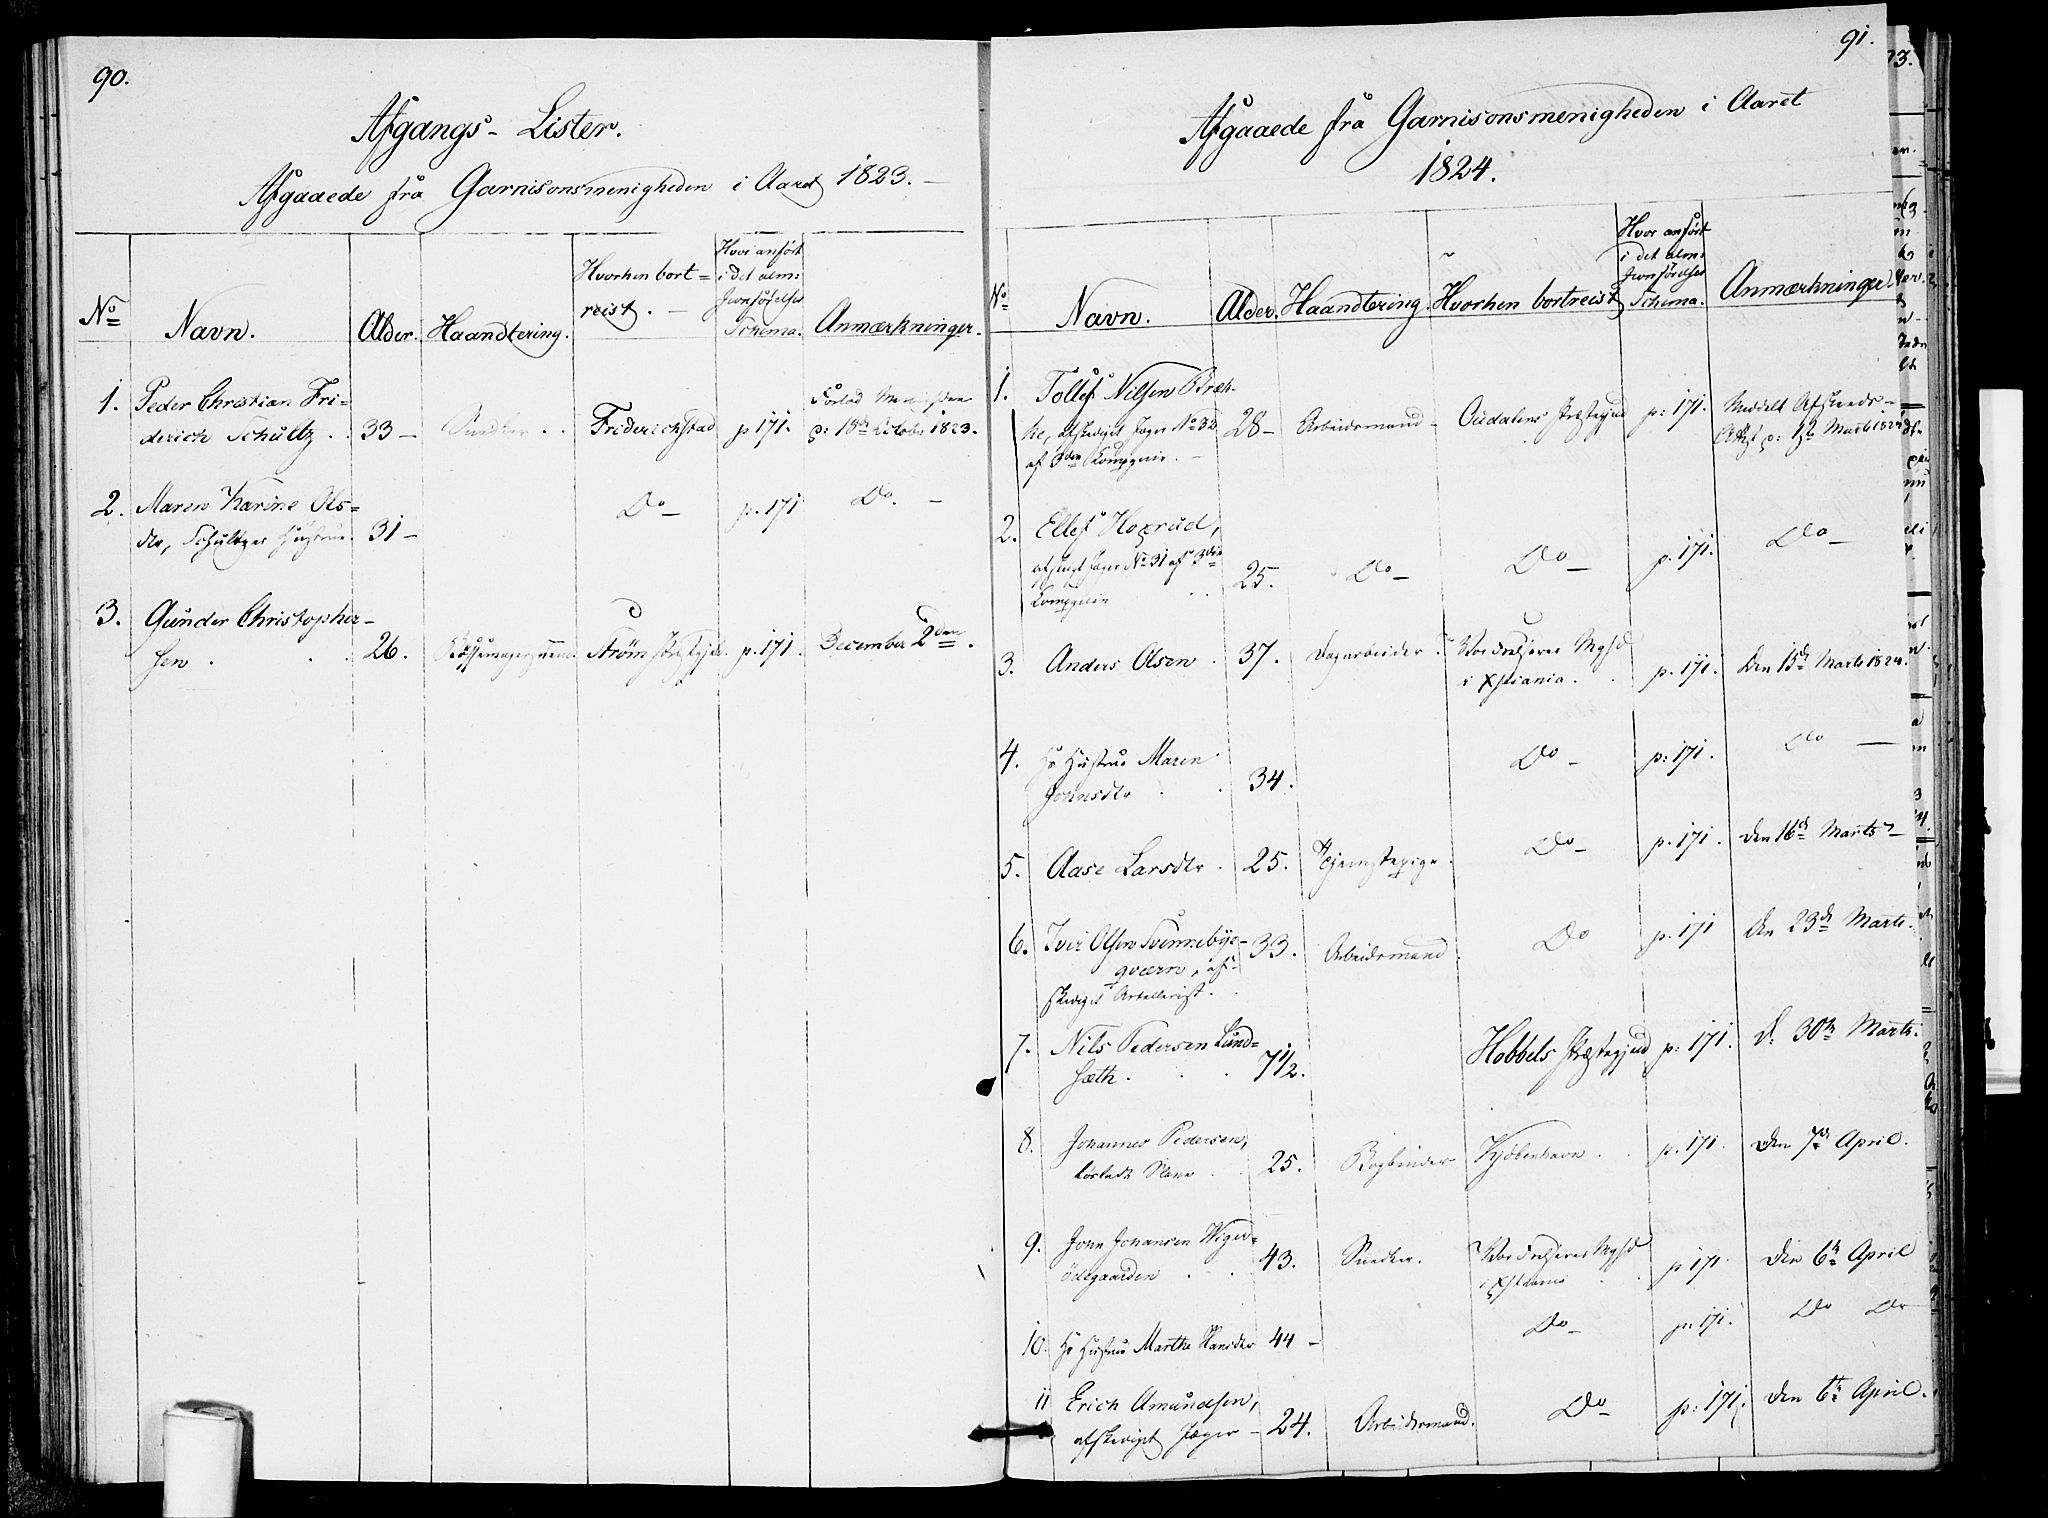 90.
Afgangs- Lister.
Afgaaede fra Garnisonsmenigheden i Aaret 1823. —
No
Navn.
Alder.
Haandtering.
Hvorhen bort=
reist. —
Hvor anført
i det alm:
Jevnførelses
Schema.
Anmærkninger.
1. Peder Christian Fri=
derich Schultz . . 33 — Snedker . . Friderichstad p 171. Forlod Menigheden
d: 18de Octobr 1823.
2. Maren Karine Ols=
dtr, Schultzes Hustrue. 31 — Do — p. 171 Do. —
3. Gunder Christopher=
sen . . . 26. Bøssemagersvend. Strøm Præstegjd. p. 171. December 2den.
91.
Afgaaede fra Garnisonsmenigheden i Aaret
1824.
No
Navn.
Alder.
Haandtering.
Hvorhen bortreist
Hvor anført
i det alm:
Jevnførelses
Schema.
Anmærkninger.
1. Tollef Nilsen Bræk=
ke, afskediget Jæger No 32
af 3die Compagnie. — 28 — Arbeidsmand — Oudalens Præstegjeld p: 171. Meddelt Afskeds-
Attst d: Marts 1824
2. Ellef Hoxrud,
afskediget Jæger No 31 af 3die
Compagnie . . 25. Do — Do — p. 171. Do —
3. Anders Olsen . 37. Dagarbeider . Vor Frelseres Mghd
i Xstiania . . p. 171. Den 15de Marts 1824.
4. Hs Hustrue Maren
Johnsdtr . . 34. Do — p: 171. Do —
5. Aase Larsdtr . 25. Tjenestepige . Do — p. 171. Den 16de Marts —
6. Iver Olsen Svennebye-
qværn, af-
skediget Artellerist . . 33. Arbeidsmand . Do p. 171 Den 23de Marts.
7. Nils Pedersen Lund=
sæth . . . 7½. Hobbels Præstegjeld p: 171. D: 30te Marts.
8. Johannes Pedersen,
løsladt Slave . . 25. Bogbinder Kjøbenhavn . . p. 171. Den 7de April.
9. John Johansen Wiger=
ødegaarden . . . 43. Snedker. Vor Frelseres Mghd
i Xstiania . . p 171. Den 6te April
10. Hs Hustrue Marthe Hansdtr 44 — Do — p: 171. Do Do
11 Erich Amundsen,
afskediget Jæger — 24. Arbeidsmand. Do — p: 171. Den 6te April.